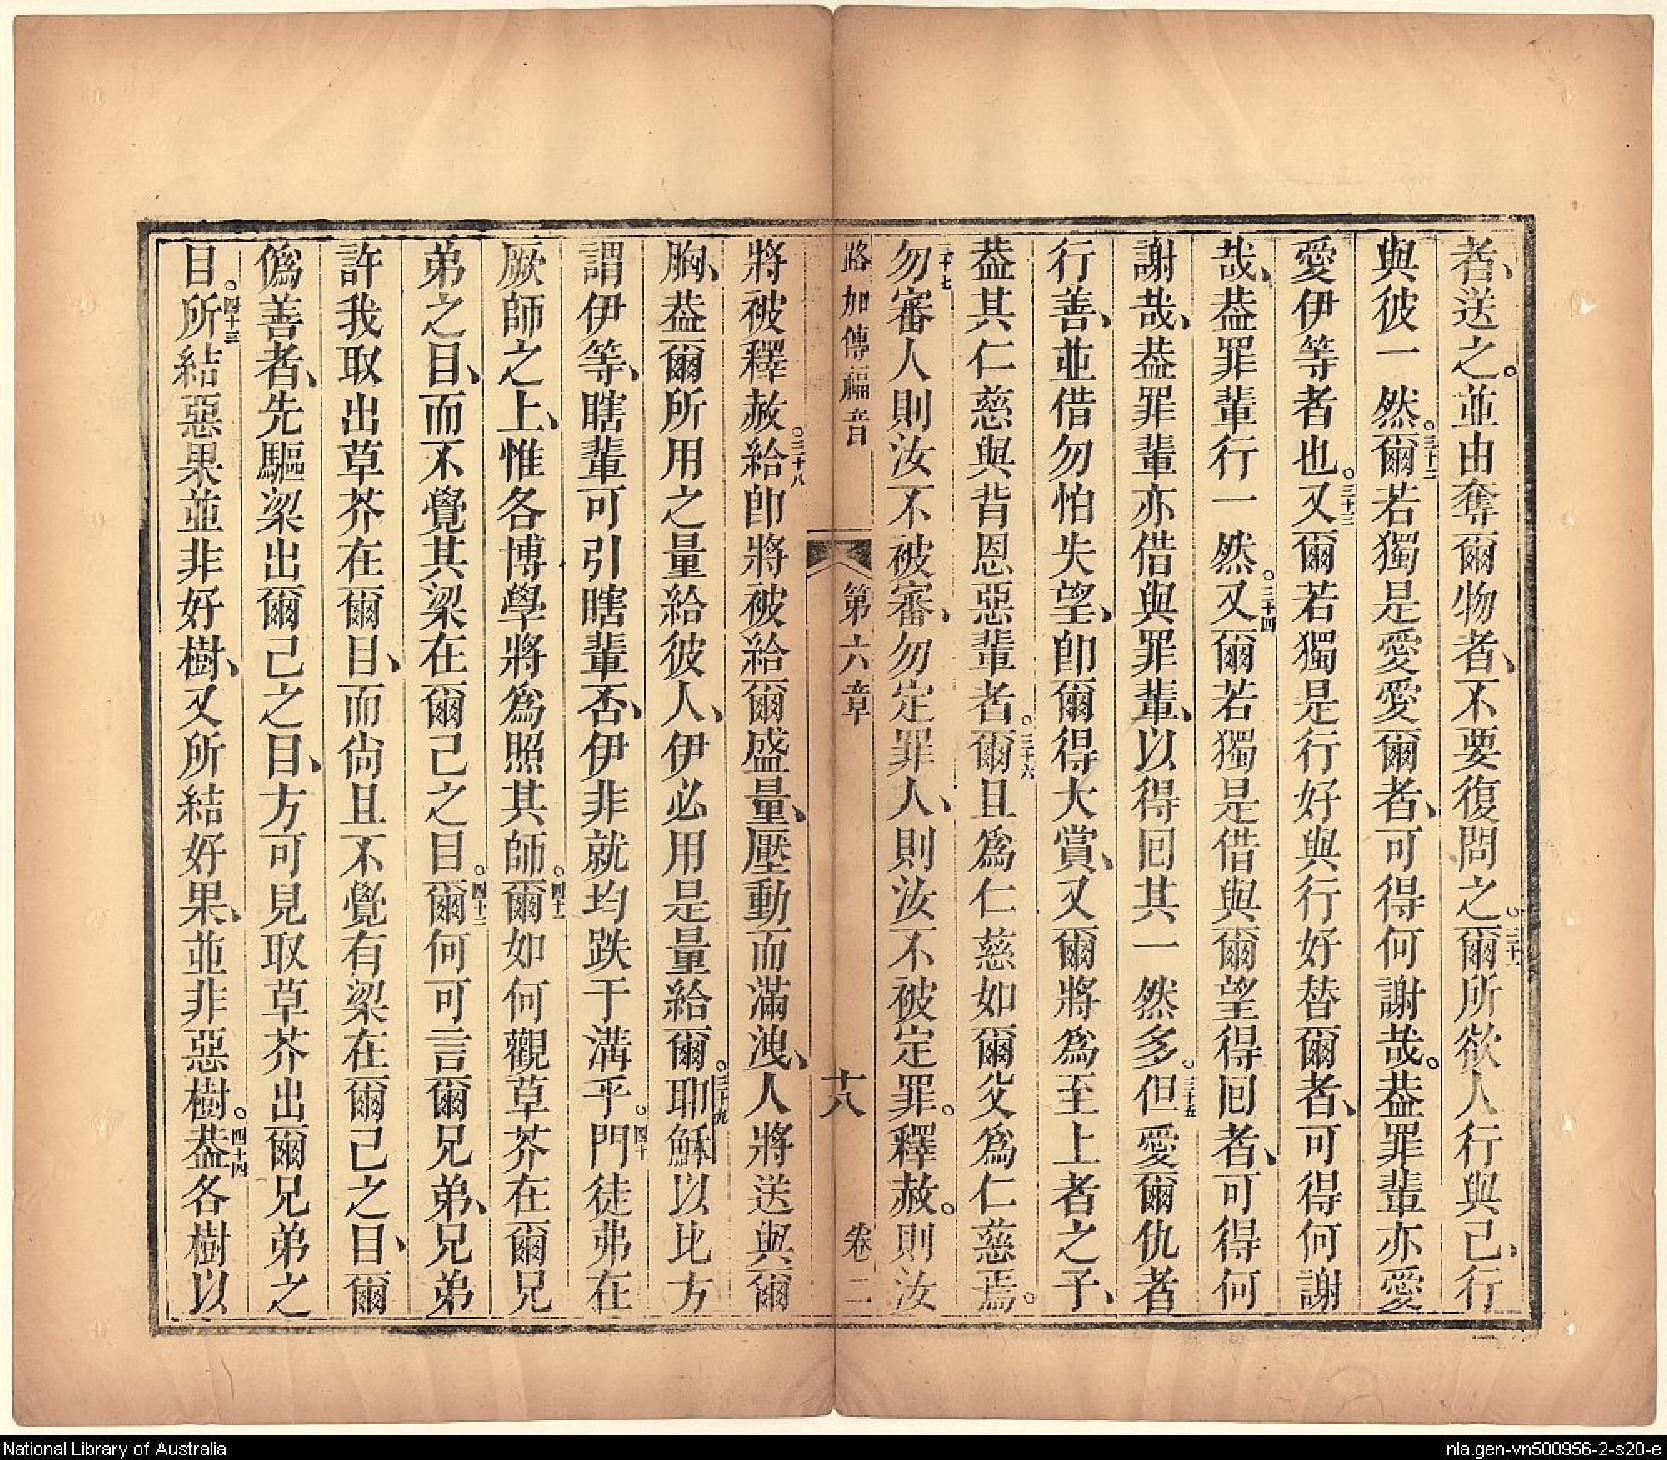 者、送之。並由奪爾物者、不要復問之。三十一爾所欲人行與己、行
與彼一然。三十二爾若獨是愛愛爾者、可得何謝哉。葢罪輩亦愛
愛伊等者也。三十三又爾若獨是行好與行好替爾者、可得何謝
哉、葢罪輩行一然。三十四又爾若獨是借與爾望得囘者、可得何
謝哉、葢罪輩亦借與罪輩、以得囘其一然多。三十五但愛爾仇者
行善、並借勿怕失望、卽爾得大賞、又爾將爲至上者之子、
葢其仁慈與背恩惡輩者。三十六爾且爲仁慈如爾父爲仁慈焉。
三十七勿審人則汝不被審、勿定罪人、則汝不被定罪。釋赦。則汝
路加傳福音 第六章 十八 卷二
將被釋赦。三十八給卽將被給爾盛量、壓動而滿洩、人將送與爾
胸、葢爾所用之量給彼人、伊必用是量給爾。三十九耶穌以比方
謂伊等、瞎輩可引瞎輩否、伊非就均跌于溝乎。四十門徒弗在
厥師之上、惟各博學將爲照其師。四十一爾如何觀草芥在爾兄
弟之目、而不覺其梁在爾己之目。四十二爾何可言爾兄弟、兄弟
許我取出草芥在爾目、而尙且不覺有梁在爾己之目、爾
僞善者、先驅梁出爾己之目、方可見取草芥出爾兄弟之
目。四十三所結惡果並非好樹、又所結好果、並非惡樹。四十四葢各樹以
National Library of Australia
nla.gen-vn500956-2-s20-e